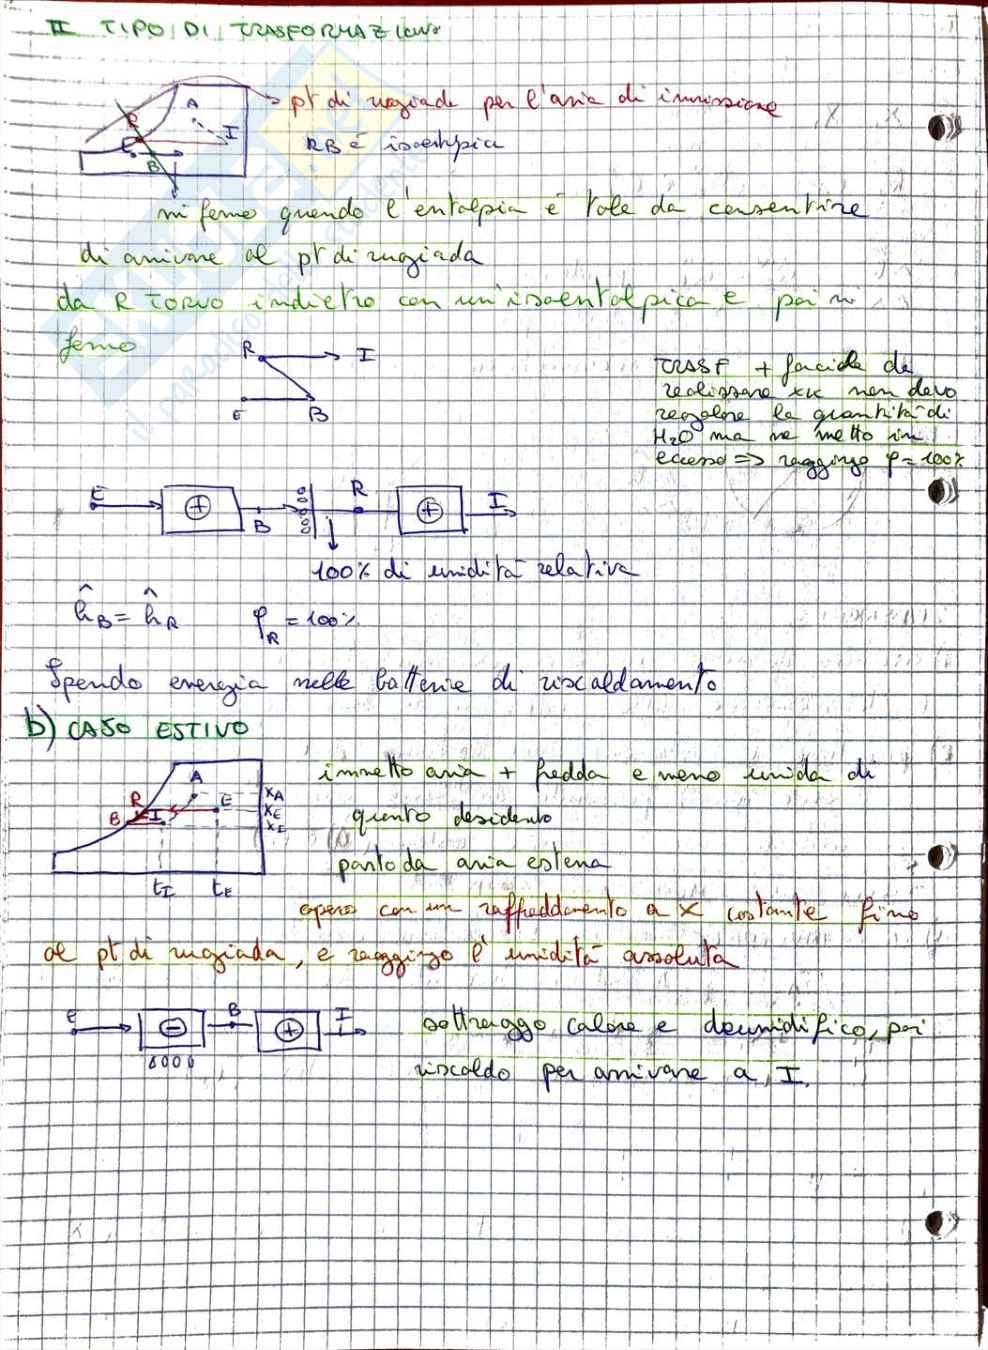 II TIPO DI TRASFORMAZIONE
A
R
I
E
B
pt di rugiada per l'aria di immissione
RB è isoentalpica
mi fermo quando l'entalpia è tale da consentire
di arrivare al pt di rugiada
da R TORNO indietro con un'isoentalpica e poi mi
fermo
R I
E B
TRASF + facile da
realizzare xk non devo
regolare la quantità di
H₂O ma ne metto in
eccesso => raggiungo φ=100%
E + B R + I
100% di umidità relativa
ĥB = ĥR φR = 100%
Spendo energia nelle batterie di riscaldamento
b) CASO ESTIVO
A
R
B
I
E
xA
xE
xI
tI tE
immetto aria + fredda e meno umida di
quanto desiderato
parto da aria esterna
opero con un raffreddamento a x costante fino
al pt di rugiada, e raggiungo l'umidità assoluta
E - B + I
sottraggo calore e deumidifico, poi
riscaldo per arrivare a I.